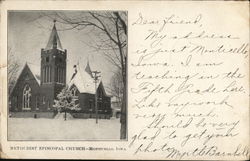 Dear friend,
My address
is just Monticello,
Iowa. I am
teaching in the
Fifth Grade here.
Like my work
very much.
Should be very
glad to get your
photo. Myrtle
METHODIST EPISCOPAL CHURCH - MONTICELLO, IOWA